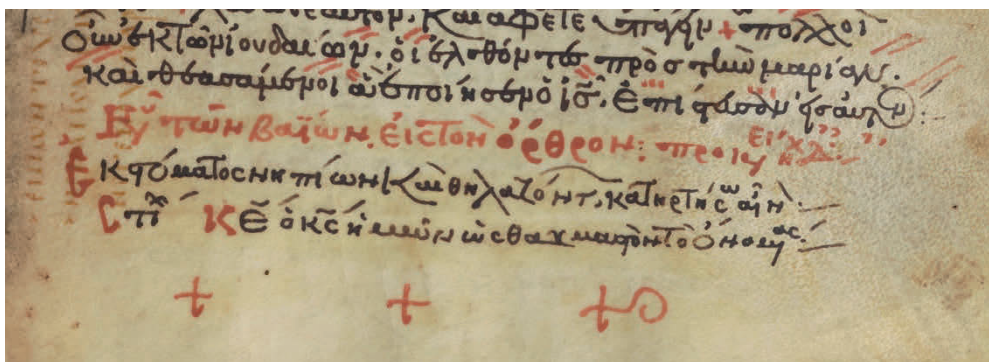 αὐτὸν. καὶ ἄφετε ὑπάγειν + πολλοὶ
οὖν ἐκ τῶν ἰουδαίων. οἱ ἐλθόντες πρὸς τὴν μαρίαν.
καὶ θεασάμενοι ἃ ἐποίησεν ὁ ις. ἐπίστευσαν εἰς αὐτὸν:
Εὐ τῶν βαΐων. εἰς τὸν ὄρθρον:
Ἐκ στόματος νηπίων καὶ θηλαζόντ. κατηρτίσω αἶν.
Στι Κε ὁ κς ἡμῶν ὡς θαυμαστὸν τὸ ὄνομα
+ + +